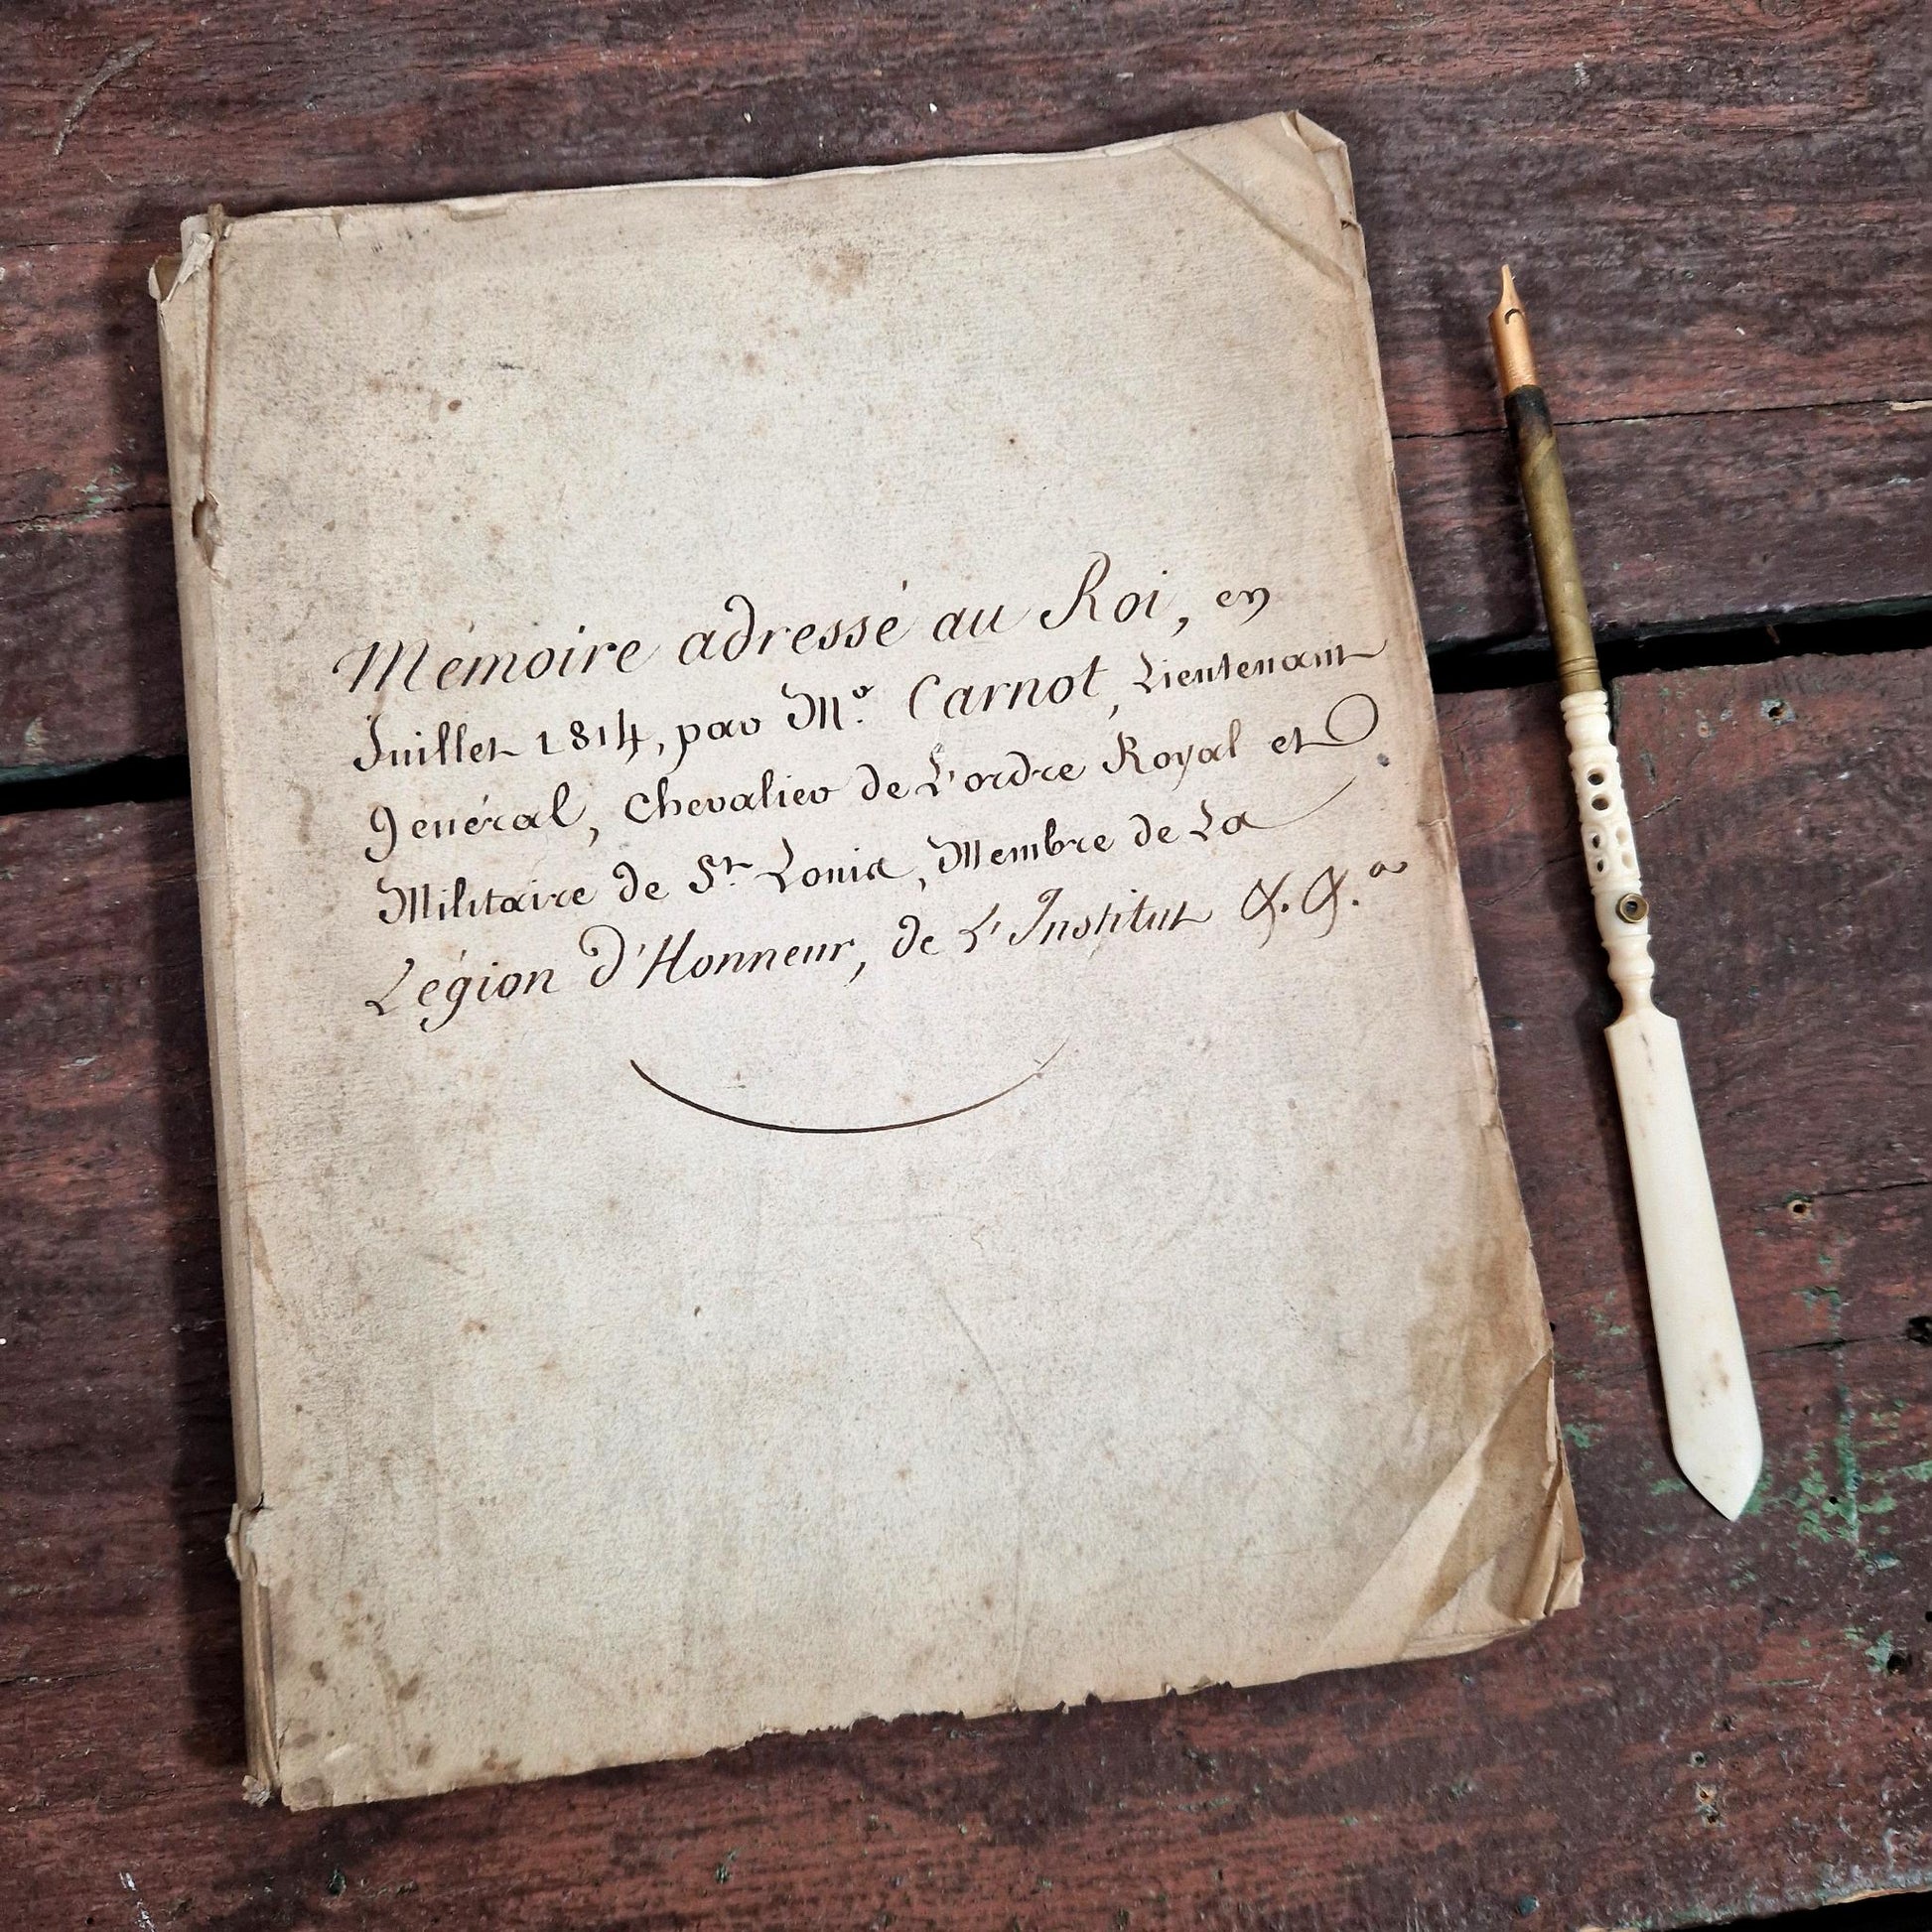 Mémoire adressé au Roi, en
Juillet 1814, par Mr. Carnot, Lieutenant
Général, Chevalier de L'ordre Royal et
Militaire de St. Louis, Membre de La
Légion d'Honneur, de L'Institut &. &.a